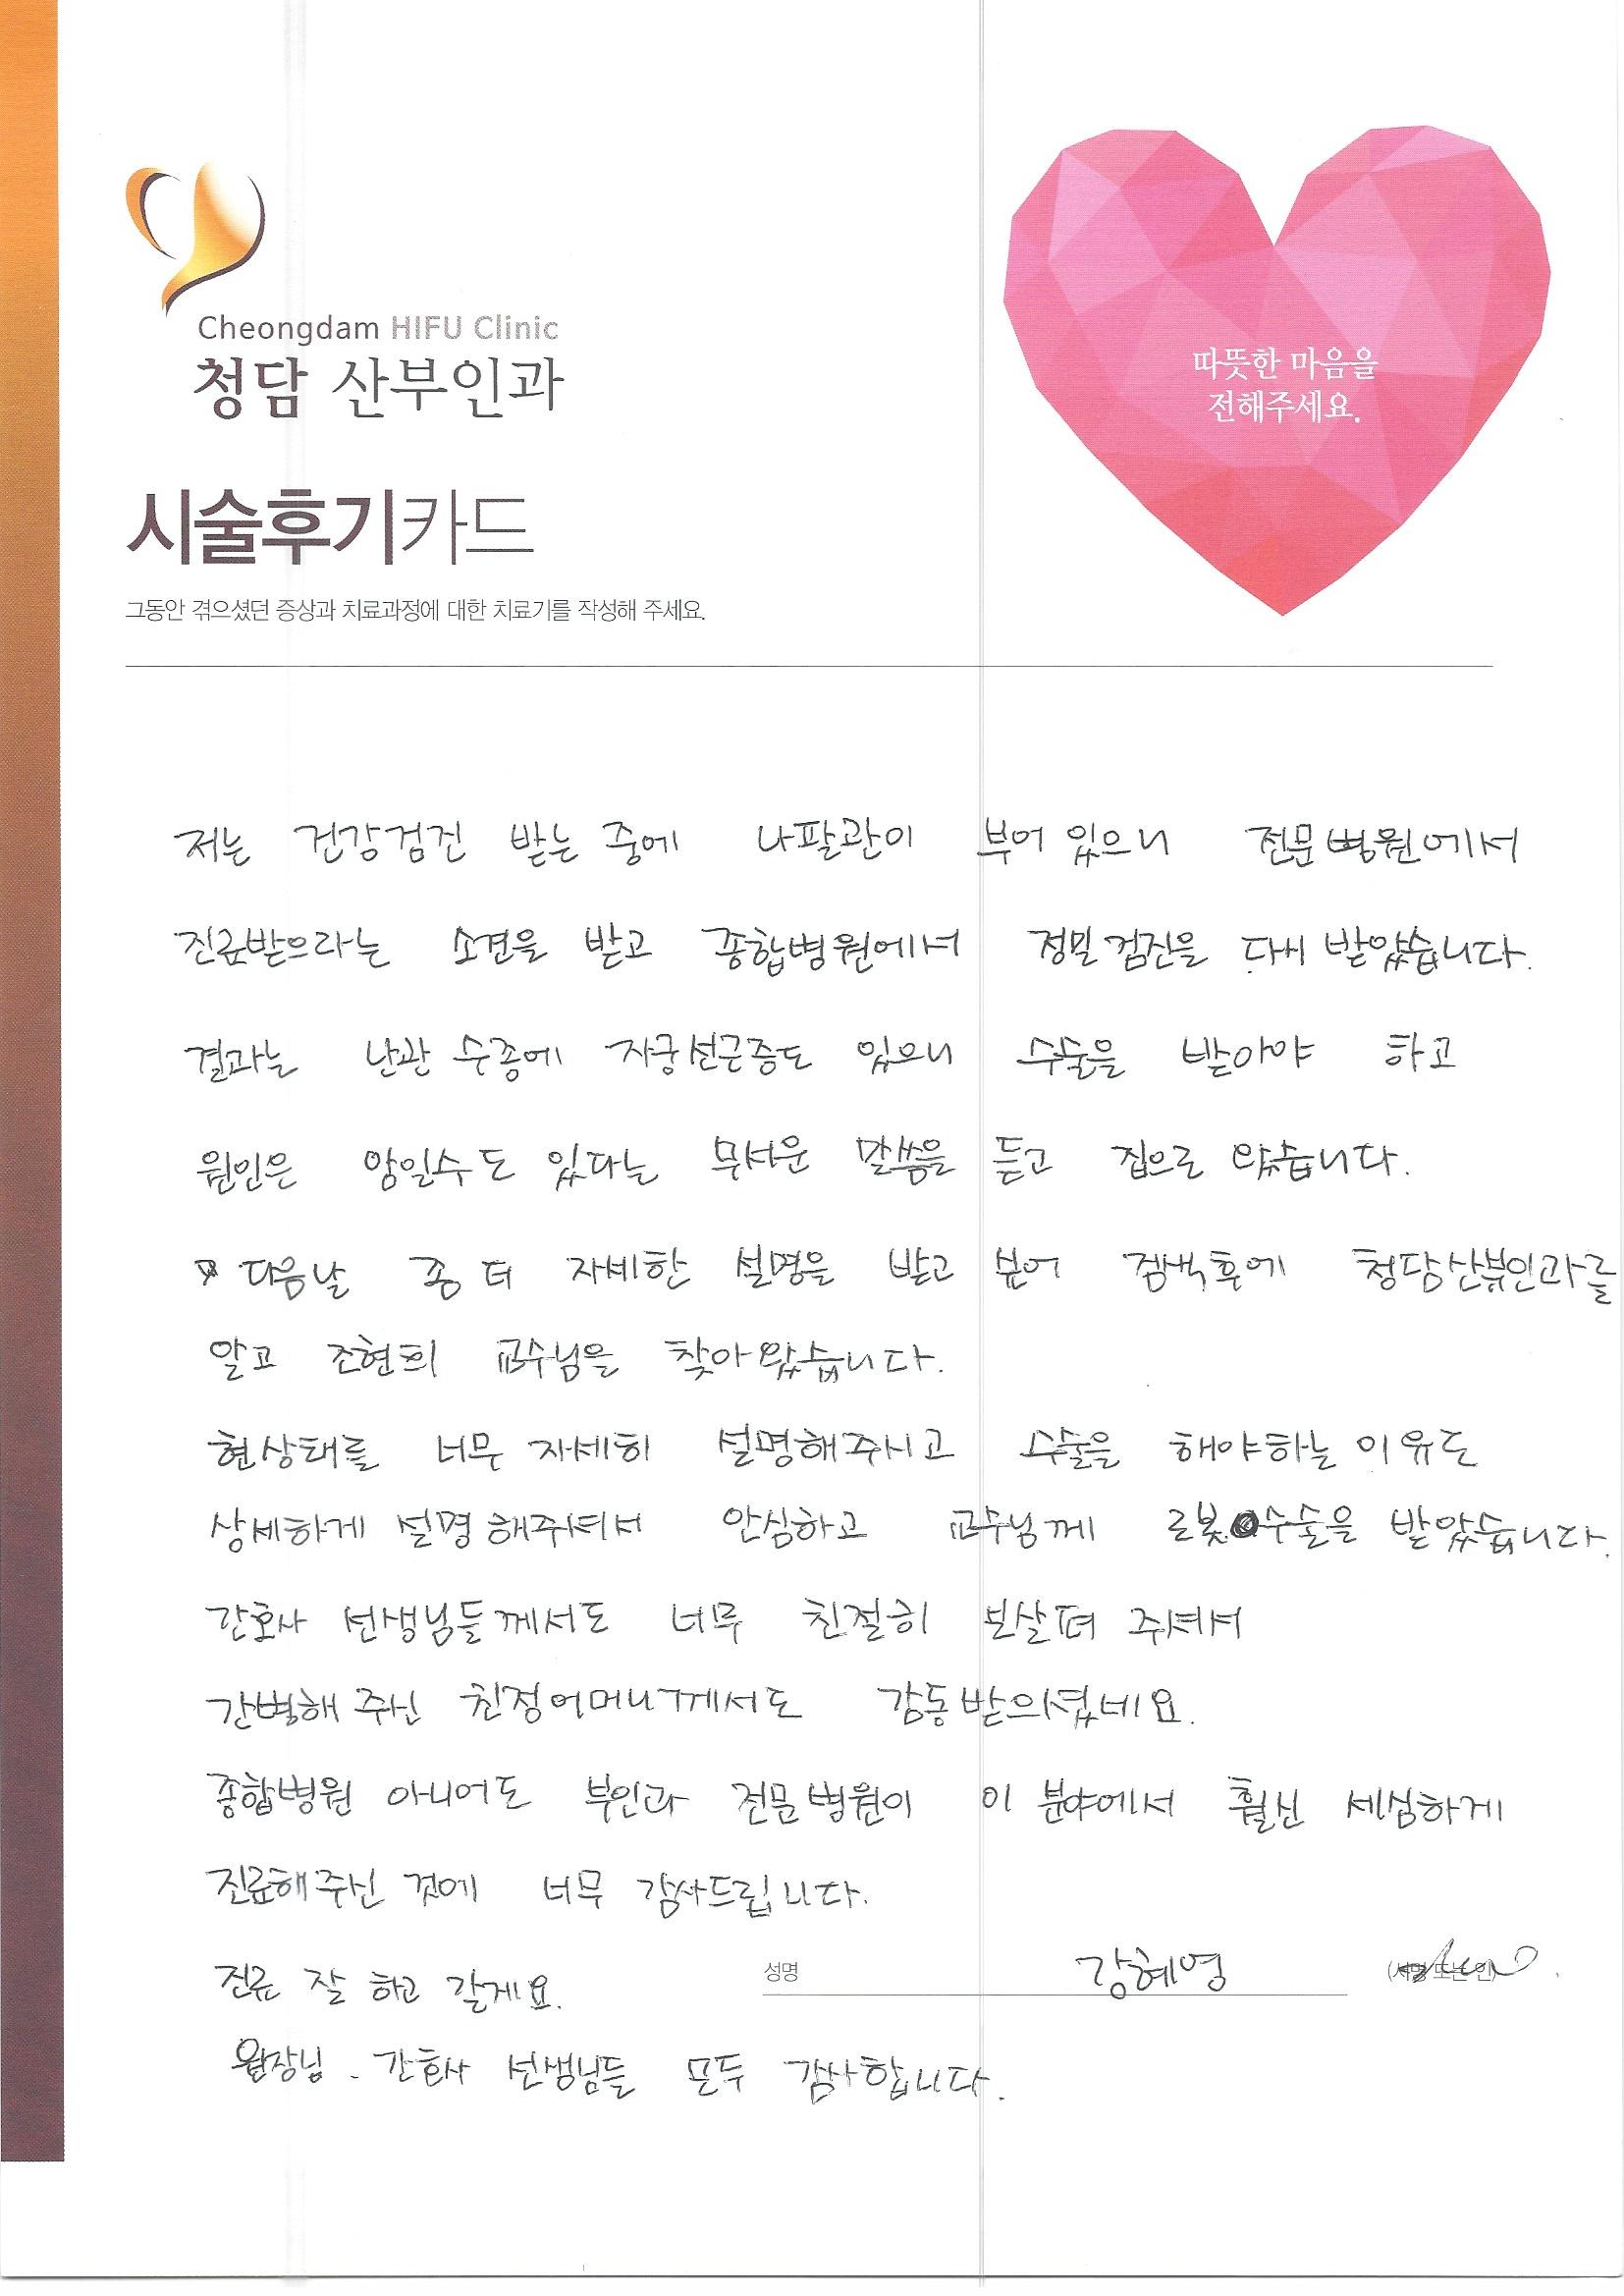 Cheongdam HIFU Clinic
청담 산부인과
따뜻한 마음을
전해주세요.
시술후기카드
그동안 겪으셨던 증상과 치료과정에 대한 치료기를 작성해 주세요.
저는 건강검진 받는 중에 나팔관이 부어 있으니 전문병원에서
진료받으라는 소견을 받고 종합병원에서 정밀검진을 다시 받았습니다.
결과는 난관 수종에 자궁선근증도 있으니 수술을 받아야 하고
원인은 암일수도 있다는 무서운 말씀을 듣고 집으로 왔습니다.
다음날 좀 더 자세한 설명을 받고 싶어 검색후에 청담산부인과를
알고 조현희 교수님을 찾아왔습니다.
현상태를 너무 자세히 설명해주시고 수술을 해야하는 이유도
상세하게 설명해주셔서 안심하고 교수님께 로봇수술을 받았습니다.
간호사 선생님들께서도 너무 친절히 보살펴 주셔서
간병해 주신 친정어머니께서도 감동받으셨네요.
종합병원 아니어도 부인과 전문병원이 이 분야에서 훨신 세심하게
진료해주신 것에 너무 감사드립니다.
진료 잘 하고 갈게요.
성명 강혜영 (서명 또는 인)
원장님. 간호사 선생님들 모두 감사합니다.